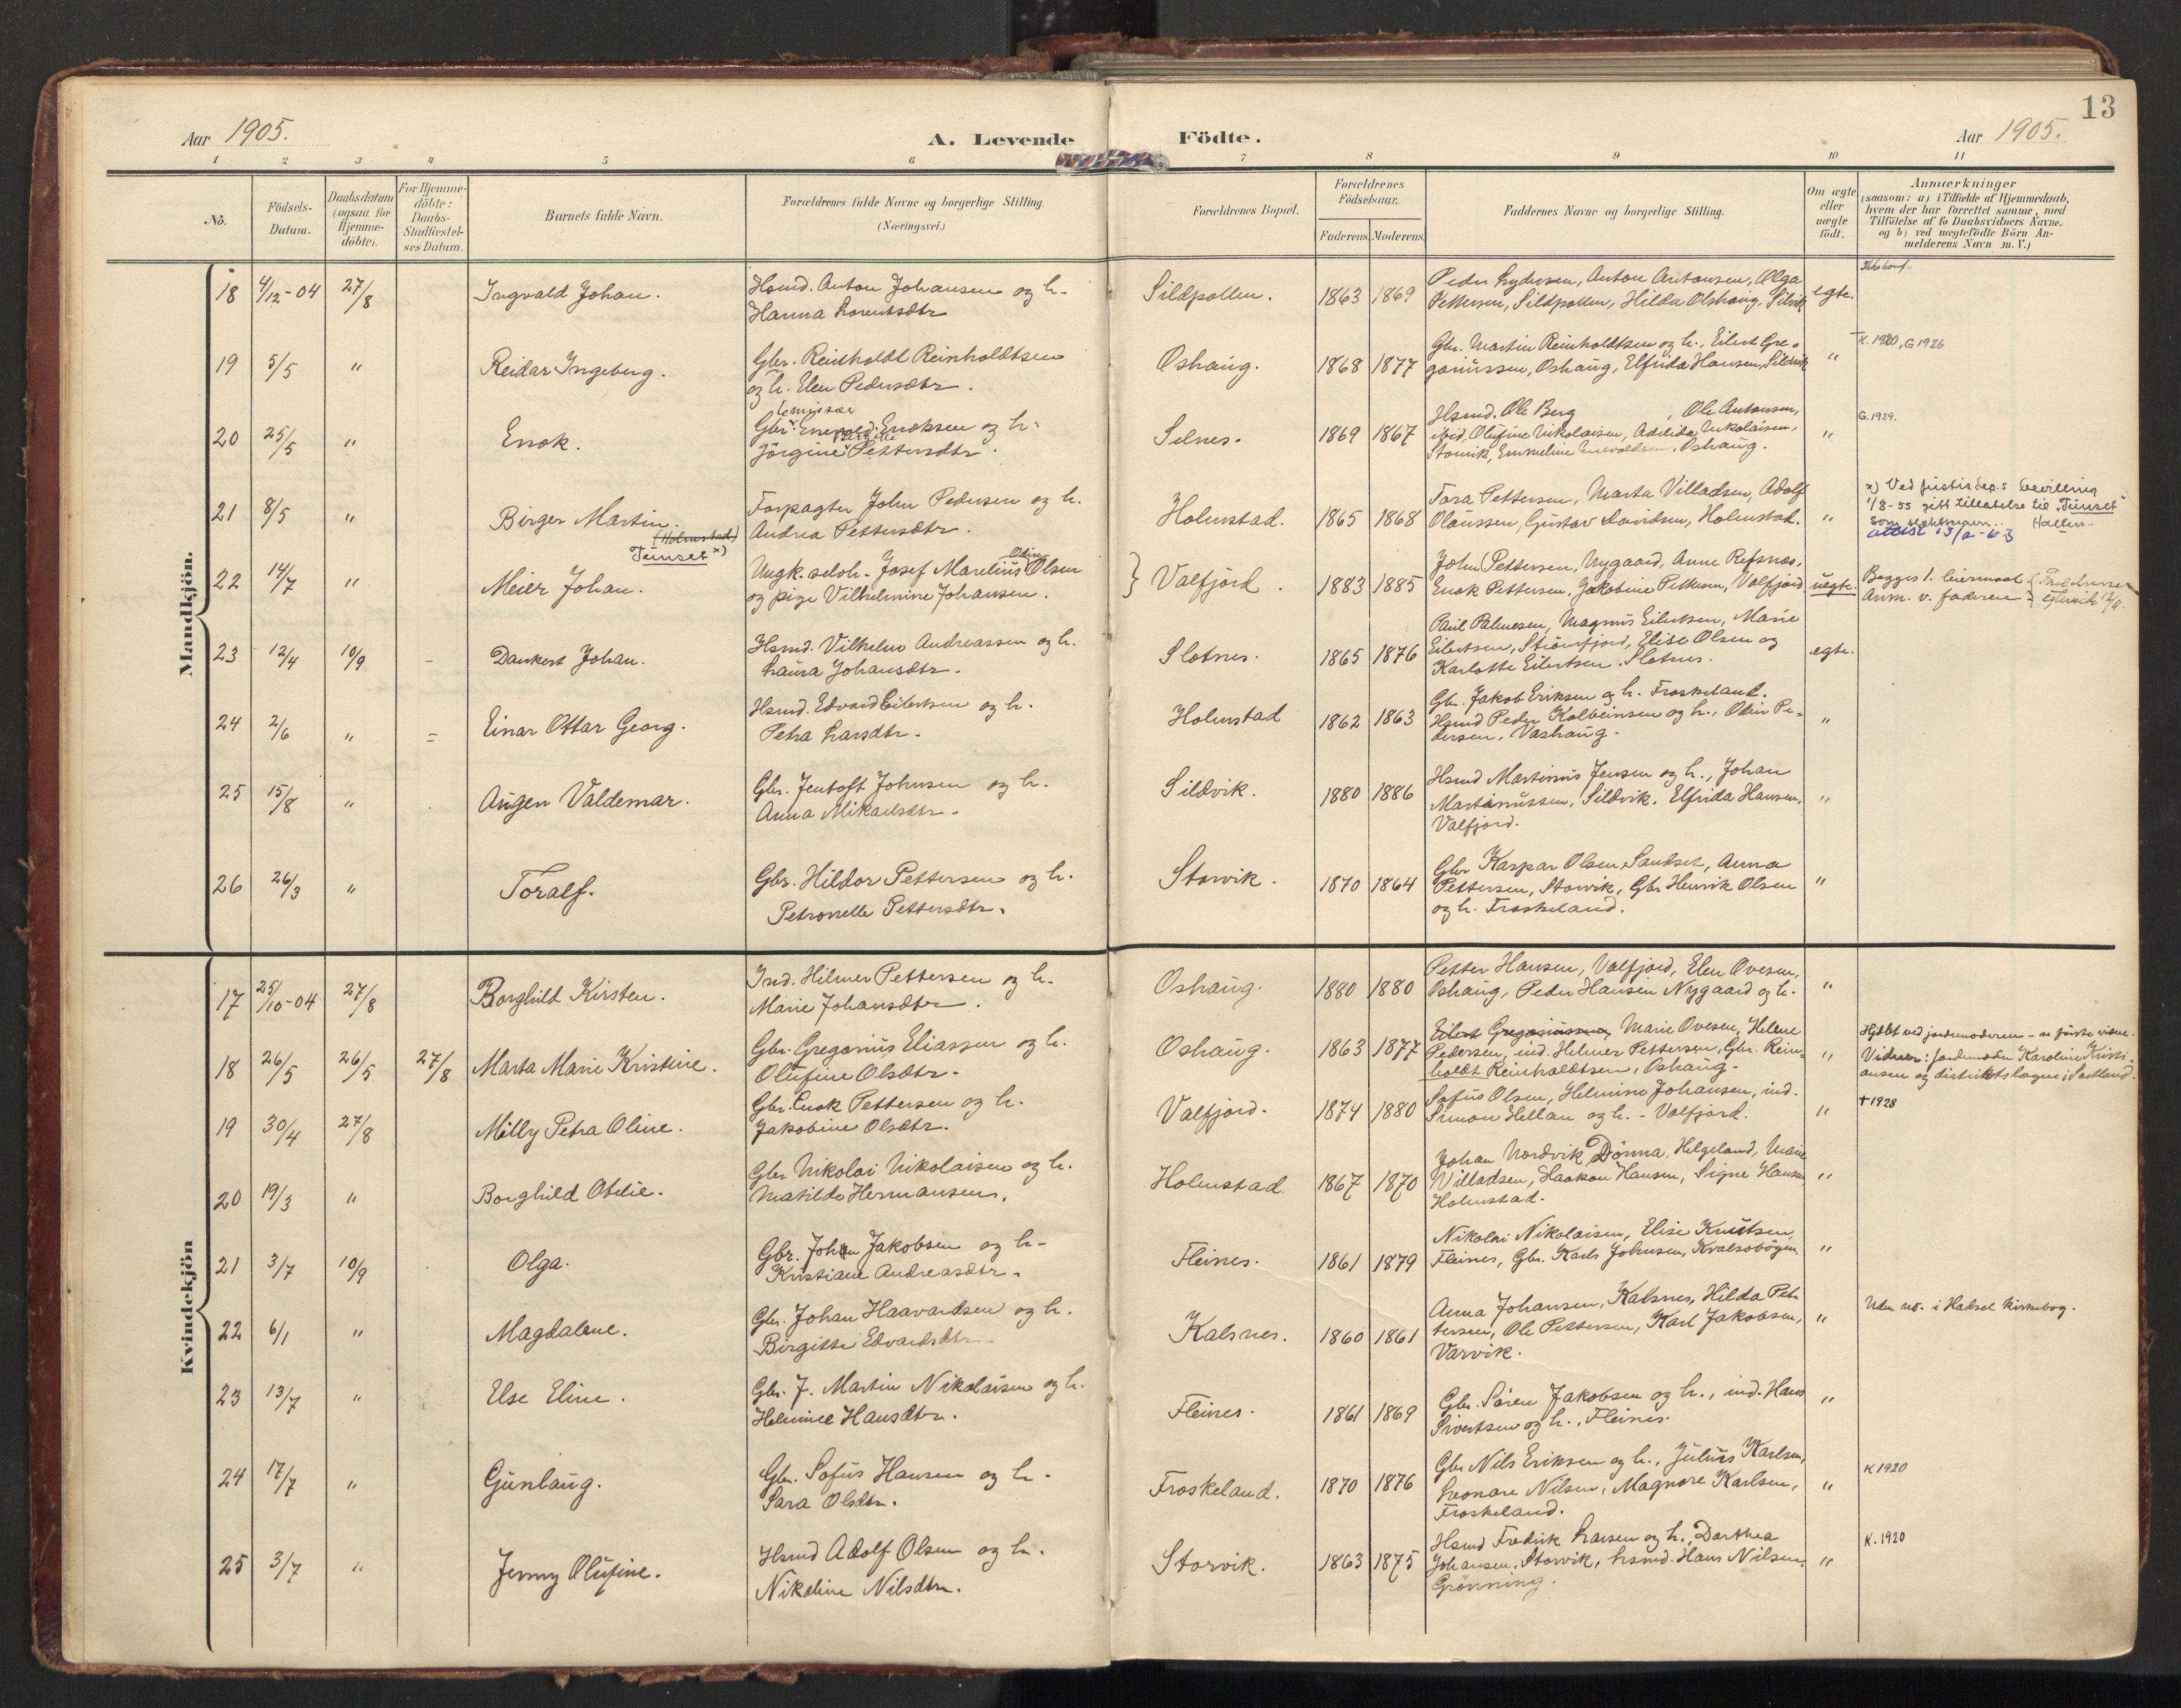 13
Aar 1905.
A. Levende Födte.
Aar 1905.
1 2 3 4 5 6 7 8 9 10 11
No.
Födsels-Datum.
Daabsdatum (ogsaa for Hjemme-döbte).
For Hjemme-döbte: Daabs-Stadfæstel-ses Datum.
Barnets fulde Navn.
Forældrenes fulde Navne og borgerlige Stilling. (Næringsvei.)
Forældrenes Bopæl.
Forældrenes Födselsaar.
Faderens. Moderens.
Faddernes Navne og borgerlige Stilling.
Om ægte eller uægte födt.
Anmærkninger
(saasom: a) i Tilfælde af Hjemmedaab,
hvem der har forrettet samme, med
Tilföielse af to Daabsvidners Navne.
og b) ved uægtefödte Börn An-
melderens Navn m. V.)
Mandkjön.
18 4/12-04 27/8 Ingvald Johan.
Hsmd. Anton Johansen og h.
Hanna Lorentsdtr
Sildpollen. 1863 1869
Peder Lydersen, Anton Antonsen, Olga
Pettersen, Sildpollen, Hilda Olshaug, Silvik
egte.
19 5/5 " Reidar Ingeberg.
Gbr. Reinholdt Reinholdtsen
og h. Elen Pedersdtr.
Oshaug. 1868 1877
Gbr. Martin Reinholdtsen og h., Eilert Gre-
goriussen, Oshaug, Elfrida Hansen, Sildvik
"
K. 1920, G 1926
20 25/5 " Enok.
Gbr. Enevold Enoksen og h.
Jörgine Pettersdtr.
Selnes. 1869 1867
Hsmd. Ole Berg, Ole Antonsen,
ibid, Olufine Nikolaisen, Adelida Nikolaisen,
Storvik, Emmeline Enevoldsen, Oshaug.
"
G. 1929.
21 8/5 " Birger Martin.
(Holmstad)
Tunset x)
Forpagter John Pedersen og h.
Andrea Pettersdtr.
Holmstad. 1865 1868
Tora Pettersen, Marta Villadsen, Adolf
Olaussen, Gustav Davidsen, Holmstad.
"
x) Ved justisdep.s bevilling
1/8-55 gitt tillatelse til "Tunset"
som slektsnavn. Hallen.
attest 13/2-63
22 14/7 " Meier Johan.
Ungk. selvh. Josef Marelius Odin Olsen
og pige Vilhelmine Johansen.
Valfjord. 1883 1885
John Pettersen, Nygaard, Anne Refsnes,
Enok Pettersen, Jakobine Pettersen, Valfjord
uegte.
Begges 1. leiermaal
Anm. v. faderen
23 12/4 10/9 - Dankert Johan.
Hsmd. Vilhelm Andreassen og h.
Laura Johansdtr.
Slotnes. 1865 1876
Paul Palmesen, Magnus Eilertsen, Marie
Eilertsen, Straumfjord, Elise Olsen og
Karlotte Eilertsen, Slotnes.
egte.
24 2/6 " = Einar Ottar Georg.
Hsmd. Edvard Eilertsen og h.
Petra Larsdtr.
Holmstad 1862 1863
Gbr. Jakob Eriksen og h. Froskeland.
Hsmd Peder Kolbeinsen og h., Odin Pe-
dersen, Vashaug.
"
25 15/8 " Augen Valdemar.
Gbr. Jentoft Johnsen og h.
Anna Mikaelsdtr.
Sildvik. 1880 1886
Hsmd Martinus Jensen og h., Johan
Martinussen, Sildvik. Elfrida Hansen,
Valfjord.
"
26 26/3 " Toralf.
Gbr. Hildor Pettersen og h.
Petronelle Pettersdtr.
Storvik. 1870 1864
Gbr Kaspar Olsen, Sandset, Anna
Pettersen, Storvik, Gbr Henrik Olsen
og h. Froskeland.
"
Kvindekjön
17 25/10-04 27/8 Borghild Kirsten.
Ind. Hilmer Pettersen og h.
Marie Johansdtr.
Oshaug. 1880 1880
Petter Hansen, Valfjord, Elen Ovesen,
Oshaug, Peder Hansen Nygaard og h.
"
18 26/5 26/5 27/8 Marta Marie Kristine.
Gbr. Gregorius Eliassen og h.
Olufine Olsdtr.
Oshaug. 1863 1877
Eilert Gregoriussen, Marie Ovesen, Helene
Pedersen, ind. Helmer Pettersen, Gbr. Rein-
holdt Reinholdtsen, Oshaug.
"
Hjdbt ved jordemoderen - se förste vidne.
Vidner: Jordmoder Karoline Kristi-
ansen og distriktslægen i Sortland.
19 30/4 27/8 Milly Petra Oline.
Gbr. Enok Pettersen og h.
Jakobine Olsdtr.
Valfjord. 1874 1880
Sofus Olsen, Helmine Johansen, ind.
Simon Hellan og h. - Valfjord.
"
+ 1928
20 19/3 " Borghild Otelie.
Gbr Nikolai Nikolaisen og h.
Matilde Hermansens.
Holmstad. 1867 1870
Johan Nordvik, Dönna, Helgeland, Marie
Willadsen, Haakon Hansen, Signe Hansen
Holmstad.
"
21 3/7 10/9 Olga.
Gbr. John Jakobsen og h.
Kristiane Andreasdtr.
Fleines. 1861 1879
Nikolai Nikolaisen, Elise Knutsen,
Fleines, Gbr. Karls Johnsen, Kvalsobögen.
"
22 6/1 " Magdalene.
Gbr. Johan Haavardsen og h.
Birgitte Edvardsdtr.
Kalsnes. 1860 1861
Anna Johansen, Kalsnes, Hilda Pet-
tersen, Ole Pettersen, Karl Jakobsen,
Varvik.
"
Uden no. i Hadsel kirkebog.
23 13/7 " Else Eline.
Gbr. J. Martin Nikolaisen og h.
Helmine Hansdtr.
Fleines. 1861 1869
Gbr. Sören Jakobsen og h., ind. Hans
Sivertsen og h., Fleines.
"
24 17/7 " Gunlaug.
Gbr. Sofus Hansen og h.
Sara Olsdtr.
Froskeland. 1870 1876
Gbr Nils Eriksen og h., Julius Karlsen,
Leonare Nilsen, Magnore Karlsen,
Froskeland.
"
K 1920
25 3/7 " Jenny Olufine.
Hsmd Adolf Olsen og h.
Nikoline Nilsdtr.
Storvik. 1863 1875
Hsmd Fredrik Larsen og h., Dorthea
Johansen, Storvik, hsmd. Hans Nilsen,
Grönning.
"
K. 1920